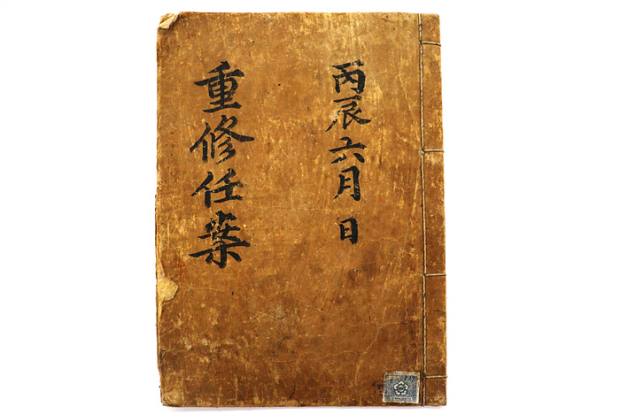 丙辰六月 日
重修任案